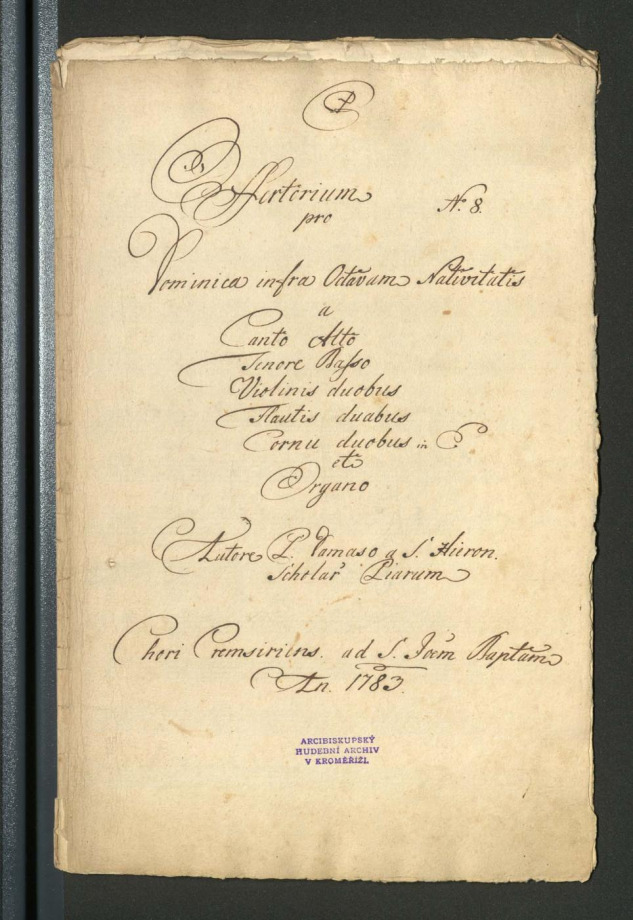 Offertorium N: 8.
pro
Dominica infra Octavam Nativitatis
a
Canto Alto
Tenore Basso
Violinis duobus
Flautis duabus
Cornu duobus in C
et
Organo
Autore P. Damaso a S. Hieron.
Scholar Piarum
Chori Cremsiriens. ad S. Joem Baptam
An. 1783.
ARCIBISKUPSKÝ
HUDEBNÍ ARCHIV
V KROMĚŘÍŽI.